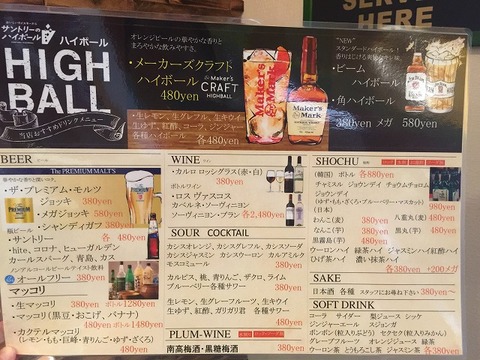 SERVE
HERE
サントリーの
ハイボール
ハイボール
HIGH
BALL
当店おすすめドリンクメニュー
オレンジピールの華やかな香りと
まろやかな飲みやすさ。
・メーカーズクラフト
ハイボール
480yen
Maker's
CRAFT
HIGHBALL
・生レモン、生グレフル、生キウイ
生ゆず、紅酢、コーラ、ジンジャー
各種ハイボール 各480yen
Maker's
Mark
"NEW"
スタンダードハイボール!
・ビーム
ハイボール
・角ハイボール
380yen メガ 580yen
BEER
The PREMIUM MALT'S
・ザ・プレミアム・モルツ
ジョッキ 380yen
・メガジョッキ 580yen
・シャンディガフ 380yen
瓶ビール
・サントリー 480yen
・hite、コロナ、ヒューガルデン
カールスバーグ、青島、カス
各 480yen
ノンアルコールビールテイスト飲料
オールフリー 380yen
マッコリ
・生マッコリ 380yen ボトル1280yen
・マッコリ(黒豆・おこげ、バナナ)
480yen ボトル1480yen
・カクテルマッコリ 480yen
(レモン・もも・巨峰・青りんご・ゆず・ざくろ)
WINE
・カルロ ロッシグラス(赤・白)
380yen
ボトルワイン
・ロス ヴァスコス
カベルネ・ソーヴィニヨン
ソーヴィニヨン・ブラン 各2,480yen
SOUR COCKTAIL
カシスオレンジ、カシスグレフル、カシスソーダ
カシスジャスミン カシスウーロン カルアミルク
モスコミュール 380yen
カルピス、桃、青りんご、ざくろ、ライム
ブルーベリー各種サワー 380yen
生レモン、生グレーフルーツ、生キウイ
生ゆず、紅酢、ガリガリ君 各種サワー
480yen
PLUM-WINE
南高梅酒・黒糖梅酒 380yen
SHOCHU
(韓国) ボトル 各880yen
チャミスル ジョウンデイ チョウムチョロム
ジョウンデイ
(ゆず・もも・ざくろ・ブルーベリー・マスカット)
980yen
(日本)
わんこ(麦) 380yen 八重丸(麦) 480yen
なんこ(芋) 380yen 480yen
黒霧島(芋) 380yen
ウーロンハイ 緑茶ハイ ジャスミンハイ 紅酢ハイ
ひげ茶ハイ 濃い抹茶ハイ
各380yen +200メガ
SAKE
日本酒 各種 スタッフにお尋ね下さい 380yen〜
SOFT DRINK
コーラ サイダー 梨ジュース シッケ
ジンジャーエール スジョンガ
ポンポン(粒入りぶどう) セクセク(粒入りみかん)
グレープフルーツ オレンジジュース
ウーロン茶 とうもろこし茶 ジャスミン茶 各280yen